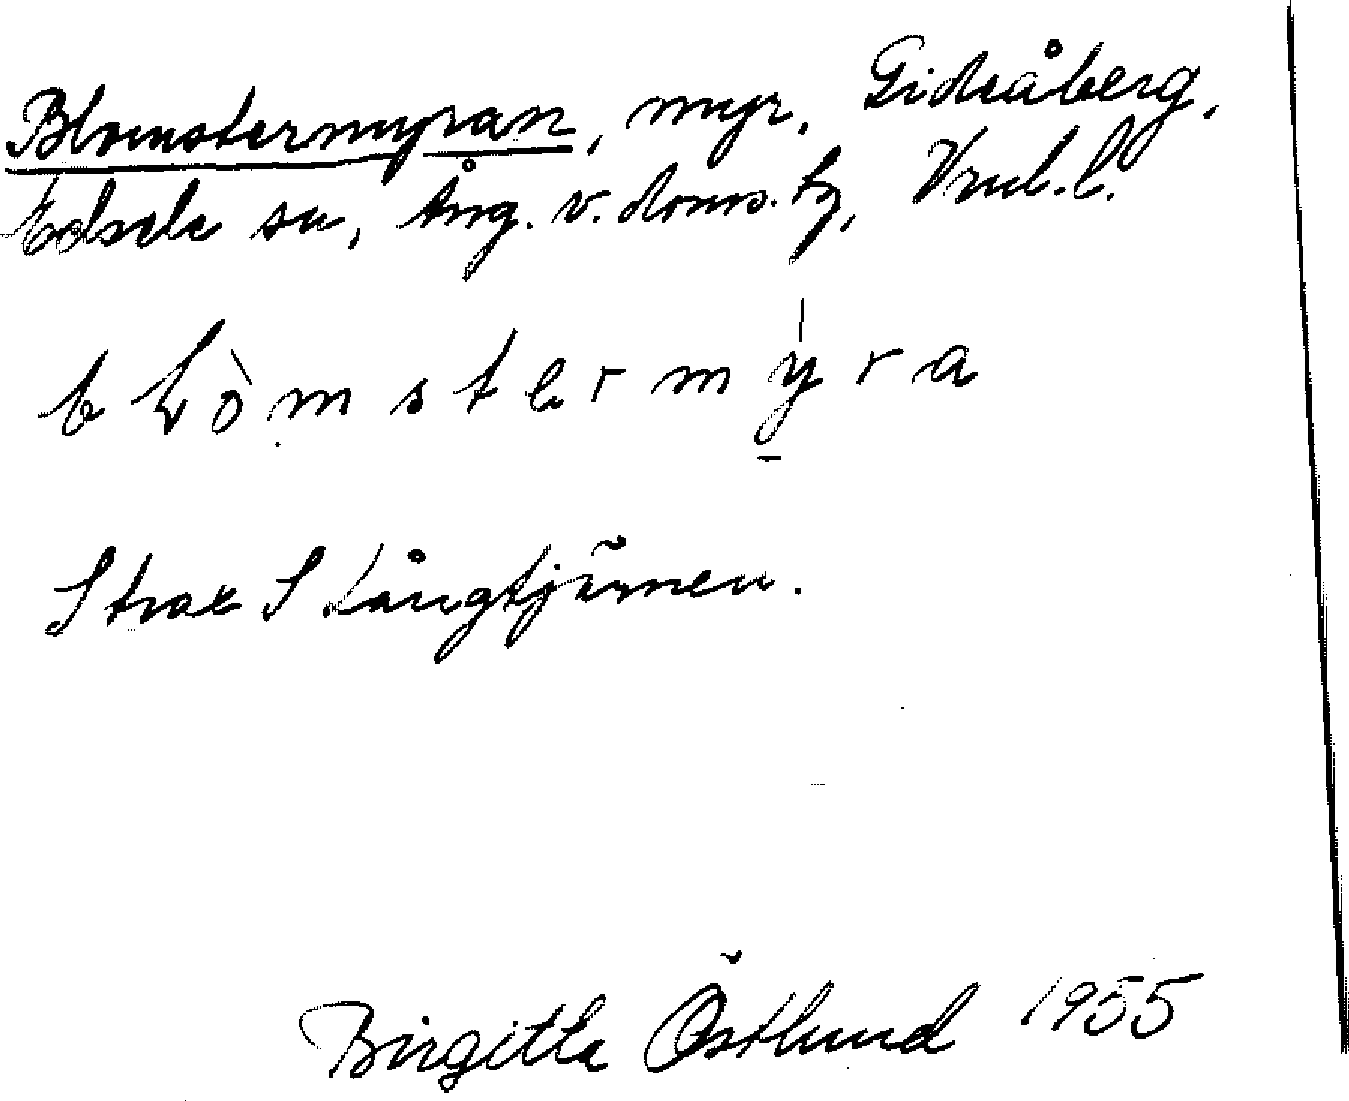 Blomstermyran, myr, Gideåberg,
Edsele sn, Ång. v. doms. tg, Vnl. l.
b L ò m s t e r m y̱ r a
Strax S Långtjärnen.
Birgitta Östlund 1955